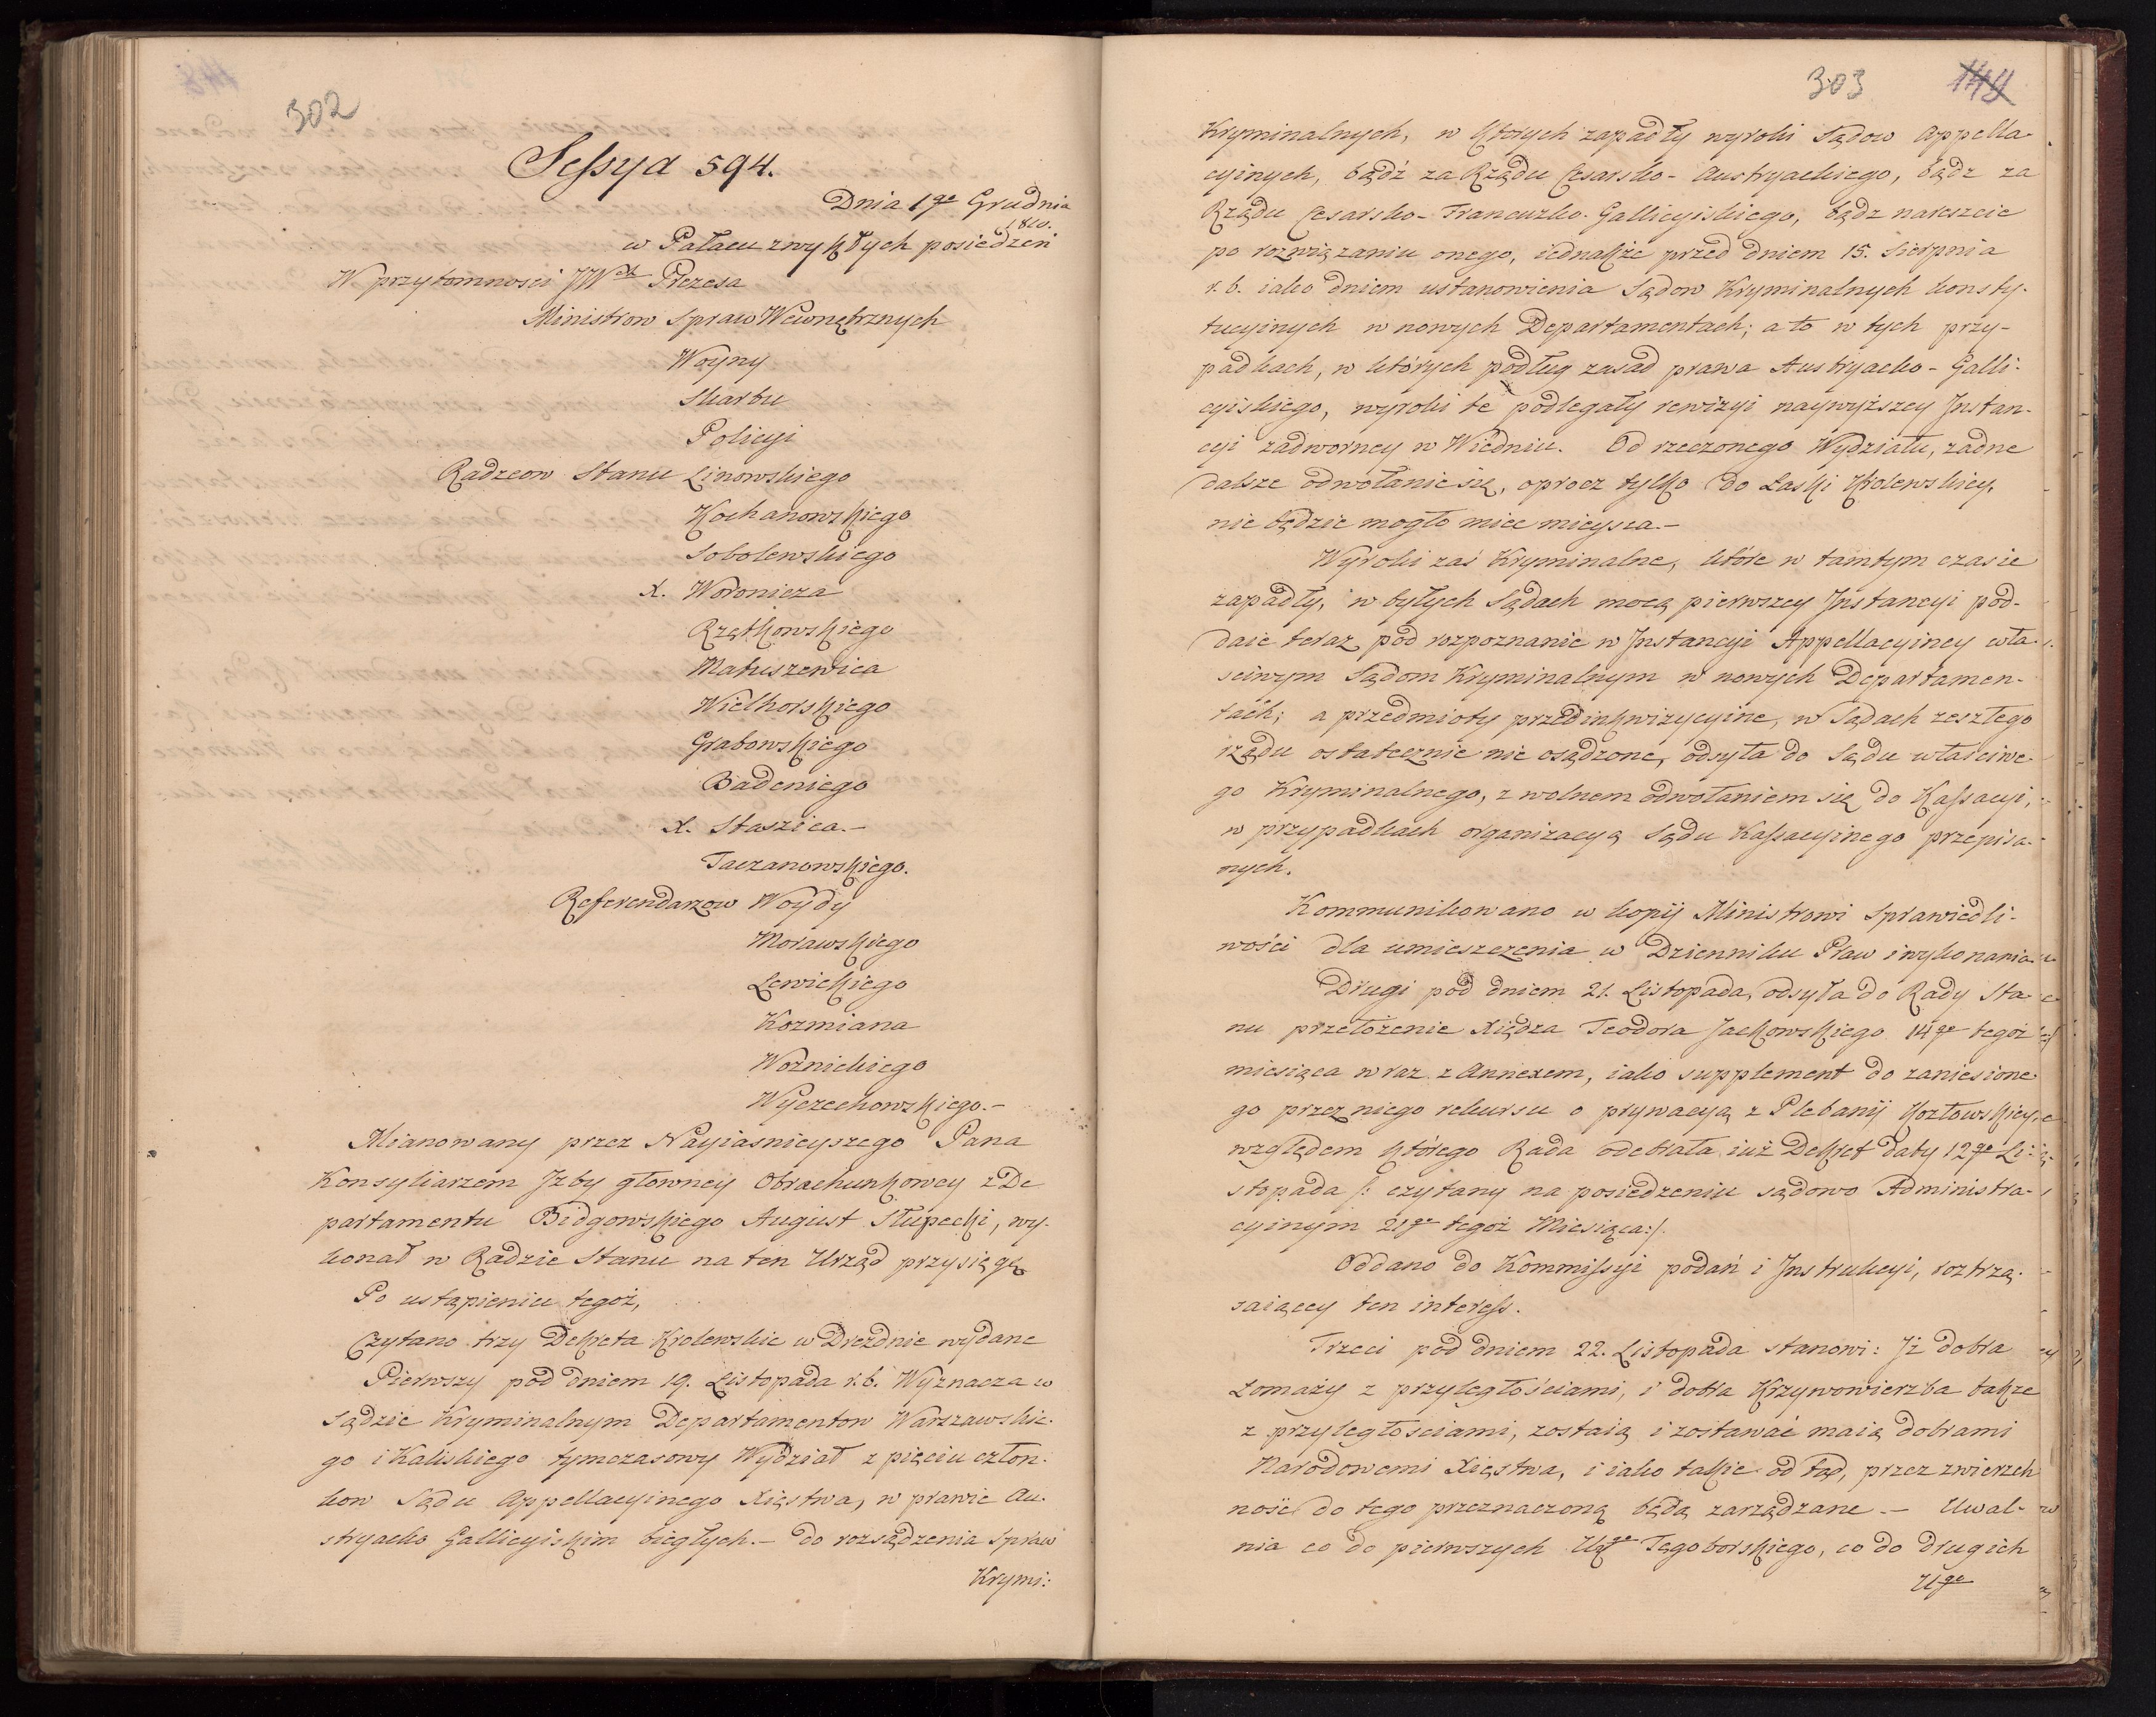 302
Sessya 594.
Dnia 1go Grudnia
1810.
w Pałacu zwykłych posiedzeń
W przytomnosci JWch Prezesa
Ministrow Spraw Wewnętrznych
Woyny
Skarbu
Policyi
Radzcow Stanu Linowskiego
Kochanowskiego
Sobolewskiego
X. Woronicza
Rzętkowskiego
Matuszewica
Wielhorskiego
Grabowskiego
Badeniego
X. Staszica.–
Taczanowskiego.
Referendarzow Woydy
Morawskiego
Lewickiego
Kozmiana
Woźnickiego
Wyczechowskiego.–
Mianowany przez Nayiasnieyszego Pana
Konsyliarzem Jzby głowney Obrachunkowey z De
partamentu Bidgowskiego August Słupecki, wy-
konał w Radzie Stanu na ten Urząd przysięgę
Po ustąpieniu tegoż,
Czytano trzy Dekreta Krolewskie w Dreźdnie wydane
Pierwszy pod dniem 19. Listopada r.b. Wyznacza w
Sądzie Kryminalnym Departamentow Warszawskie-
go i Kaliskiego tymczasowy Wydział z pięciu człon-
kow Sądu Appellacyinego Xięstwa, w prawie Au-
stryacko Gallicyiskim biegłych.– do rozsądzenia Spraw
Krymi:
303 149
Kryminalnych, w ktorych zapadły wyroki Sądow Appella-
cyinych, bądź za Rządu Cesarsko-Austryackiego, bądz za
Rządu Cesarsko-Francuzko-Gallicyiskiego, bądz nareszcie
po rozwiązaniu onego, iednakże przed dniem 15. Sierpnia
r.b. iako dniem ustanowienia Sądow Kryminalnych konsty-
tucyinych w nowych Departamentach; a to w tych przy-
padkach, w których podług zasad prawa Austryacko-Galli-
cyiskiego, wyroki te podlegały rewizyi naywyższey Jnstan-
cyi zadworney w Wiedniu. Od rzeczonego Wydziału, żadne
dalsze odwołanie się, oprocz tylko do Łaski Krolewskiey,
nie będzie mogło miec mieysca.–
Wyroki zaś Kryminalne, które w tamtym czasie
zapadły, w byłych Sądach mocą pierwszey Jnstancyi pod-
daie teraz pod rozpoznanie w Jnstancyi Appellacyiney wła-
sciwym Sądom Kryminalnym w nowych Departamen-
tach; a przedmioty przedinkwizycyine, w Sądach zeszłego
rządu ostatecznie nie osądzone, odsyła do Sądu właściwe-
go Kryminalnego, z wolnem odwołaniem się do Kassacyi,
w przypadkach organizacyą Sądu Kassacyinego przepisa-
nych.
Kommunikowano w kopij Ministrowi Sprawiedli-
wości dla umieszczenia w Dzienniku Praw i wykonania
Drugi pod dniem 21. Listopada, odsyła do Rady Sta-
nu przełożenie Xiędza Teodora Jackowskiego 14go tegoż
miesiąca wraz z Annexem, iako supplement do zaniesione-
go przez niego rekursu o prywacyą z Plebanij Kozłowskiey,
względem którego Rada odebrała iuż Dekret daty 12go Li-
stopada /: czytany na posiedzeniu sądowo Administra-
cyinym 21go tegoż Miesiąca:/.
Oddano do Kommissyi podań i Jnstrukcyi, roztrzą-
saiącey ten interess.
Trzeci pod dniem 22. Listopada stanowi: Jż dobra
Łomazy z przyległościami, i dobra Krzywowierzba takze
z przyległosciami, zostaią i zostawać maią dobrami
Narodowemi Xięstwa, i iako takie od tąd, przez zwierzch
ność do tego przeznaczoną będą zarządzane.– Uwal-
nia co do pierwszych Ugo Tęgoborskiego, co do drugich
Ugo